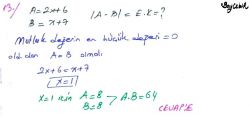 B) A = 2x+6
B = x+7
|A-B| = E.K = ?
Mutlak değerin en küçük değeri = 0
olduğundan A=B olmalı
2x+6 = x+7
x=1
x=1 için A=8
B=8
A.B=64
CEVAP:E